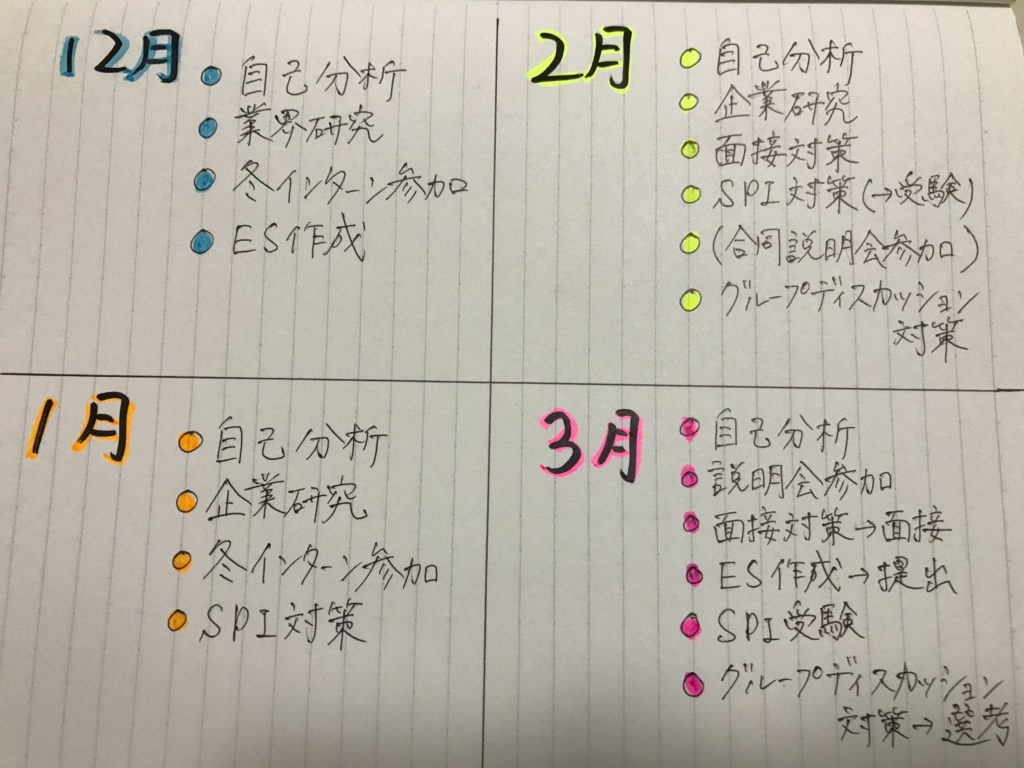 12月
自己分析
業界研究
冬インターン参加
ES作成
2月
自己分析
企業研究
面接対策
SPI対策(→受験)
(合同説明会参加)
グループディスカッション
対策
1月
自己分析
企業研究
冬インターン参加
SPI対策
3月
自己分析
説明会参加
面接対策→面接
ES作成→提出
SPI受験
グループディスカッション
対策→選考